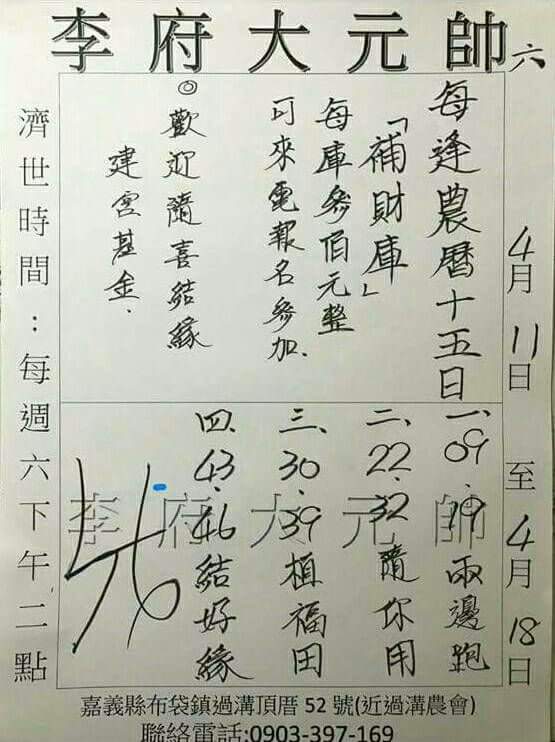 李府大元帥六
4月11日至4月18日
每逢農曆十五日
「補財庫」
每庫參佰元整
可來電報名參加.
◎歡迎隨喜結緣
建宮基金.
一、09.19兩邊跑
二、22.32隨你用
三、30.39植福田
四、43.46結好緣
李府大元帥
濟世時間:每週六下午二點
嘉義縣布袋鎮過溝頂厝52號(近過溝農會)
聯絡電話:0903-397-169